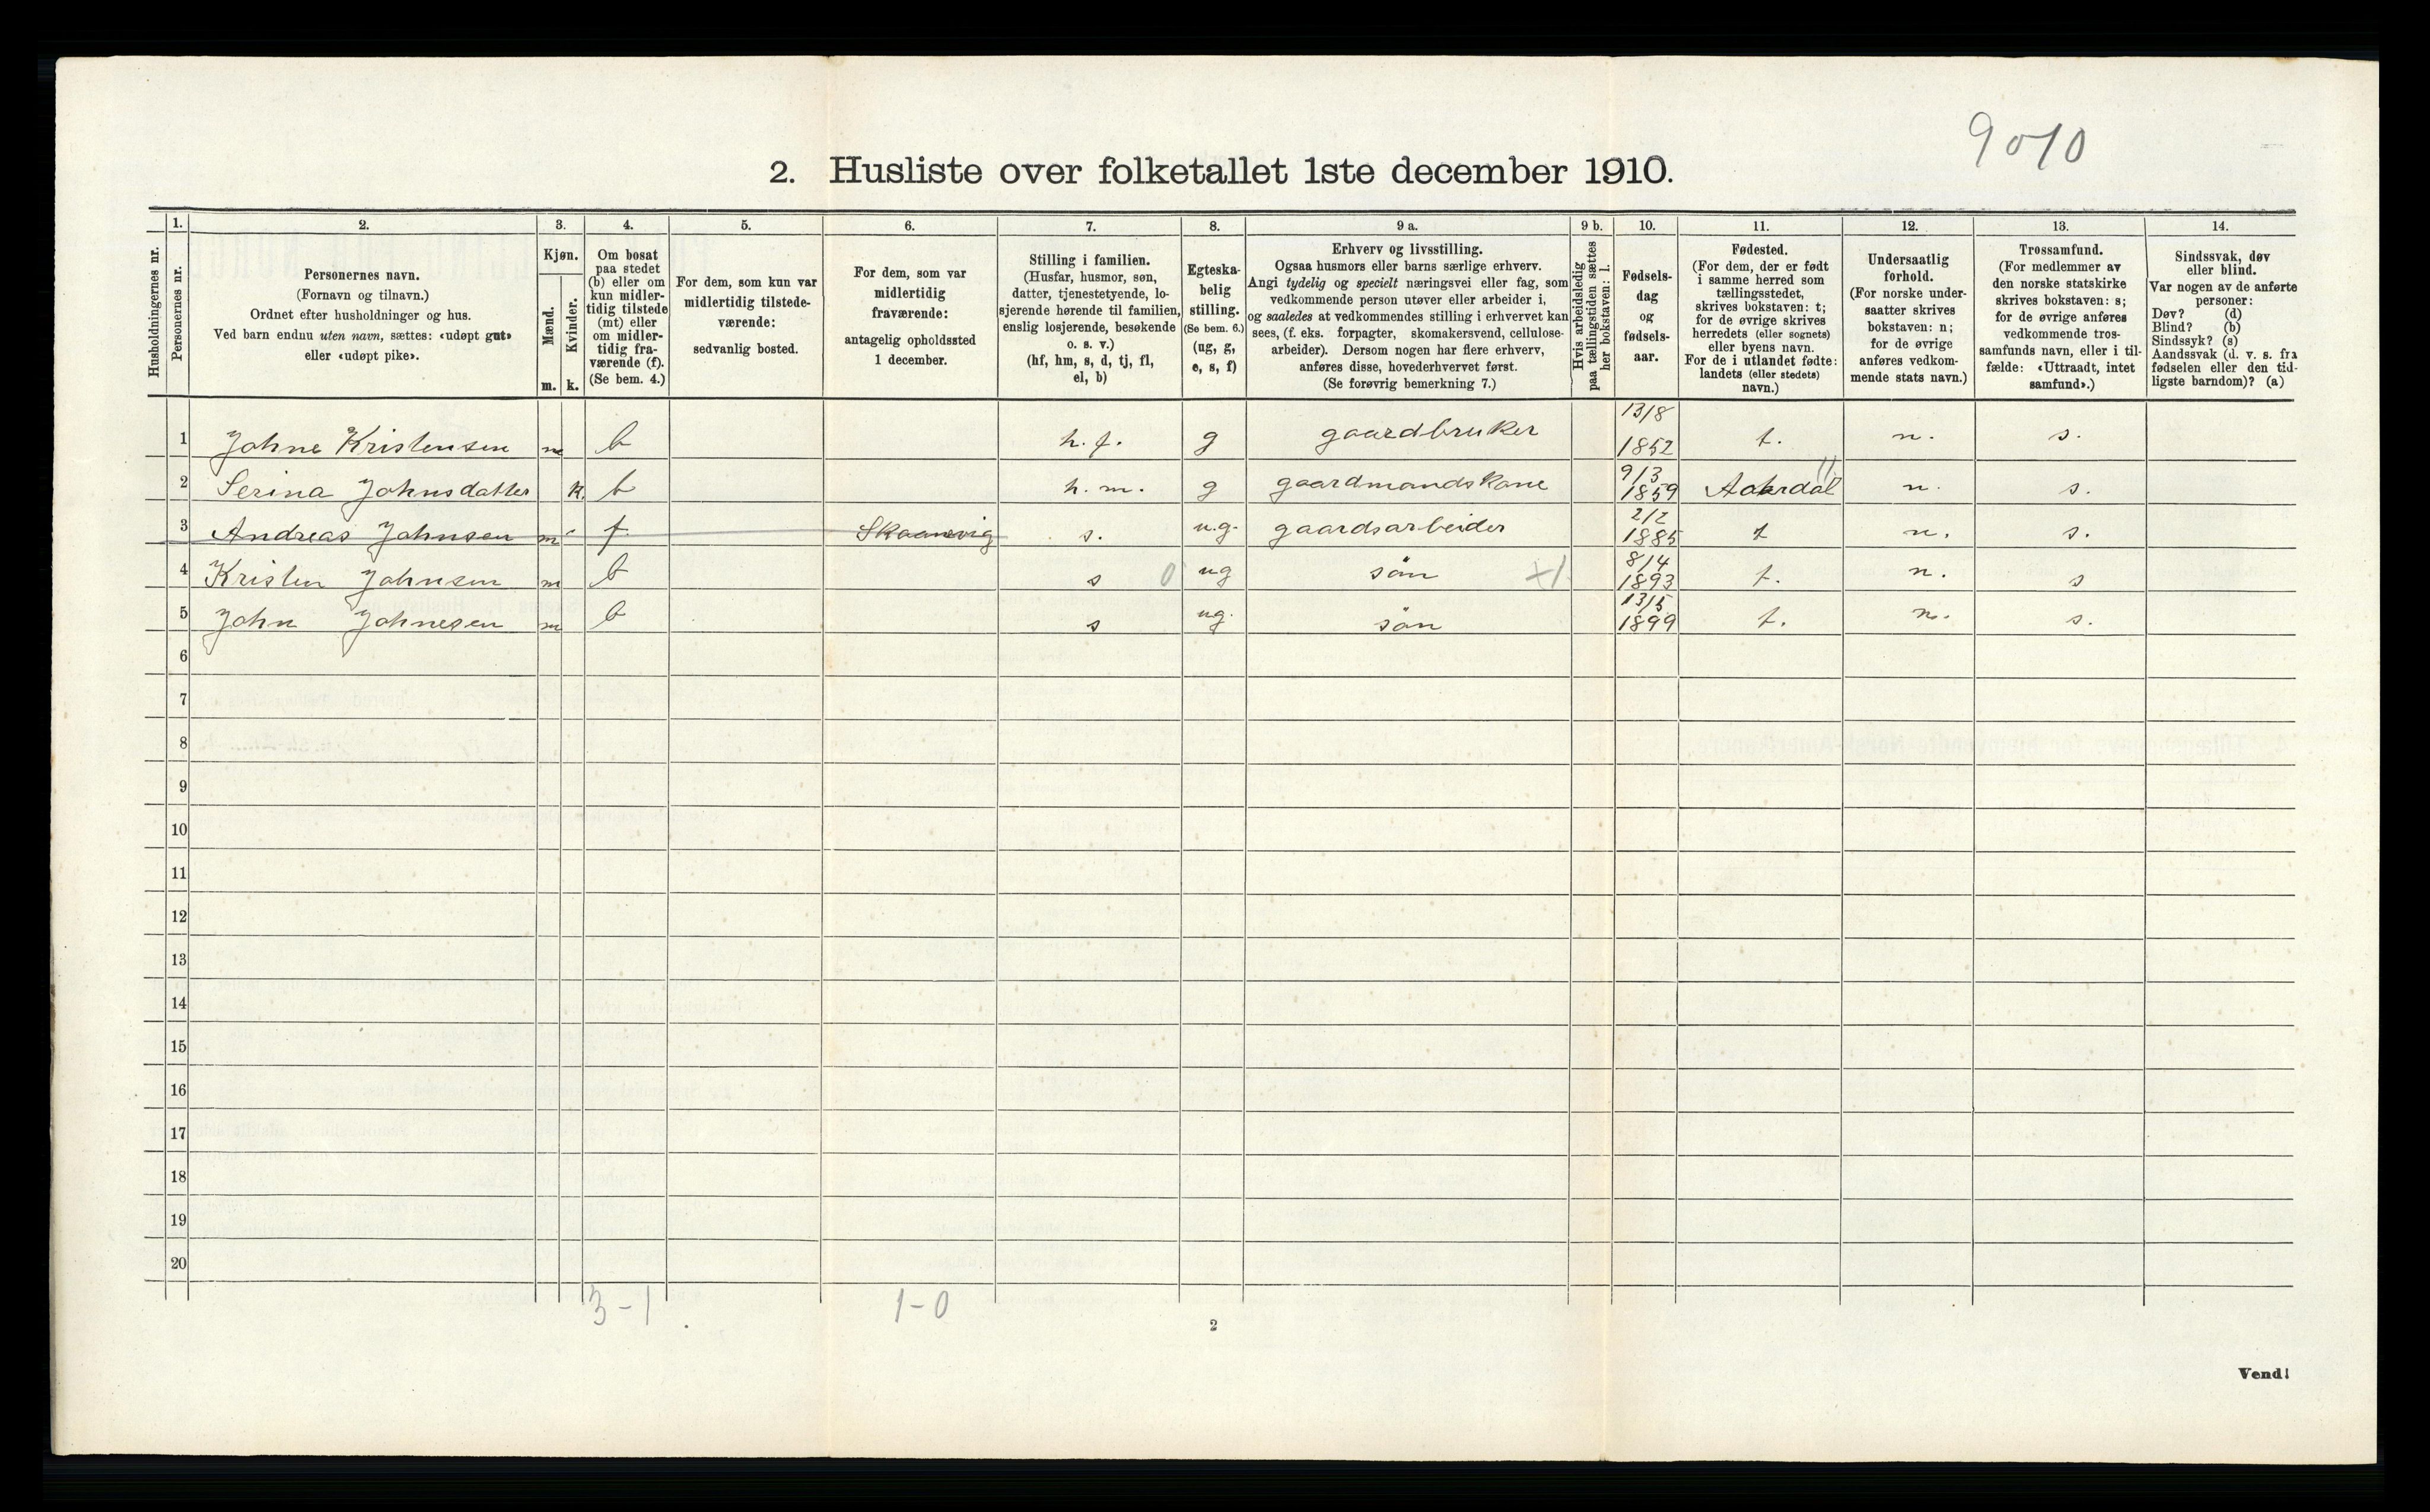 9010
2. Husliste over folketallet 1ste december 1910.
Husholdningernes nr.
1. Personernes nr.
2. Personernes navn.
(Fornavn og tilnavn.)
Ordnet efter husholdninger og hus.
Ved barn endnu uten navn, sættes: «udøpt gut»
eller «udøpt pike».
3. Kjøn.
Mænd. m.
Kvinder. k.
4. Om bosat
paa stedet
(b) eller om
kun midler-
tidig tilstede
(mt) eller
om midler-
tidig fra-
værende (f).
(Se bem. 4.)
5. For dem, som kun var
midlertidig tilstede-
værende:
sedvanlig bosted.
6. For dem, som var
midlertidig
fraværende:
antagelig opholdssted
1 december.
7. Stilling i familien.
(Husfar, husmor, søn,
datter, tjenestetyende, lo-
sjerende hørende til familien,
enslig losjerende, besøkende
o. s. v.)
(hf, hm, s, d, tj, fl,
el, b)
8. Egteska-
belig
stilling.
(Se bem. 6.)
(ug, g,
e, s, f)
9 a. Erhverv og livsstilling.
Ogsaa husmors eller barns særlige erhverv.
Angi tydelig og specielt næringsvei eller fag, som
vedkommende person utøver eller arbeider i,
og saaledes at vedkommendes stilling i erhvervet kan
sees, (f. eks. forpagter, skomakersvend, cellulose-
arbeider). Dersom nogen har flere erhverv,
anføres disse, hovederhvervet først.
(Se forøvrig bemerkning 7.)
9 b. Hvis arbeidsledig
paa tællingstiden sættes
her bokstaven: l.
10. Fødsels-
dag
og
fødsels-
aar.
11. Fødested.
(For dem, der er født
i samme herred som
tællingsstedet,
skrives bokstaven: t;
for de øvrige skrives
herredets (eller sognets)
eller byens navn.
For de i utlandet fødte:
landets (eller stedets)
navn.)
12. Undersaatlig
forhold.
(For norske under-
saatter skrives
bokstaven: n;
for de øvrige
anføres vedkom-
mende stats navn.)
13. Trossamfund.
(For medlemmer av
den norske statskirke
skrives bokstaven: s;
for de øvrige anføres
vedkommende tros-
samfunds navn, eller i til-
fælde: «Uttraadt, intet
samfund».)
14. Sindssvak, døv
eller blind.
Var nogen av de anførte
personer:
Døv? (d)
Blind? (b)
Sindssyk? (s)
Aandssvak (d. v. s. fra
fødselen eller den tid-
ligste barndom)? (a)
1 Johne Kristensen m b h. f. g gaardbruker 13/8 1852 t. n. s.
2 Serina Johnsdatter k. b h. m. g gaardmandskone 9/3 1859 n. s.
3 Andreas Johnsen m f Skaanevig s. u.g. gaardsarbeider 2/2 1885 t n. s.
4 Kristen Johnsen m b s 0 ug sön 8/4 1893 t. n. s
5 John Johnesen m b s ug. sön 13/5 1899 t. n. s.
6
7
8
9
10
11
12
13
14
15
16
17
18
19
20
3-1 1-0
2
Vend!